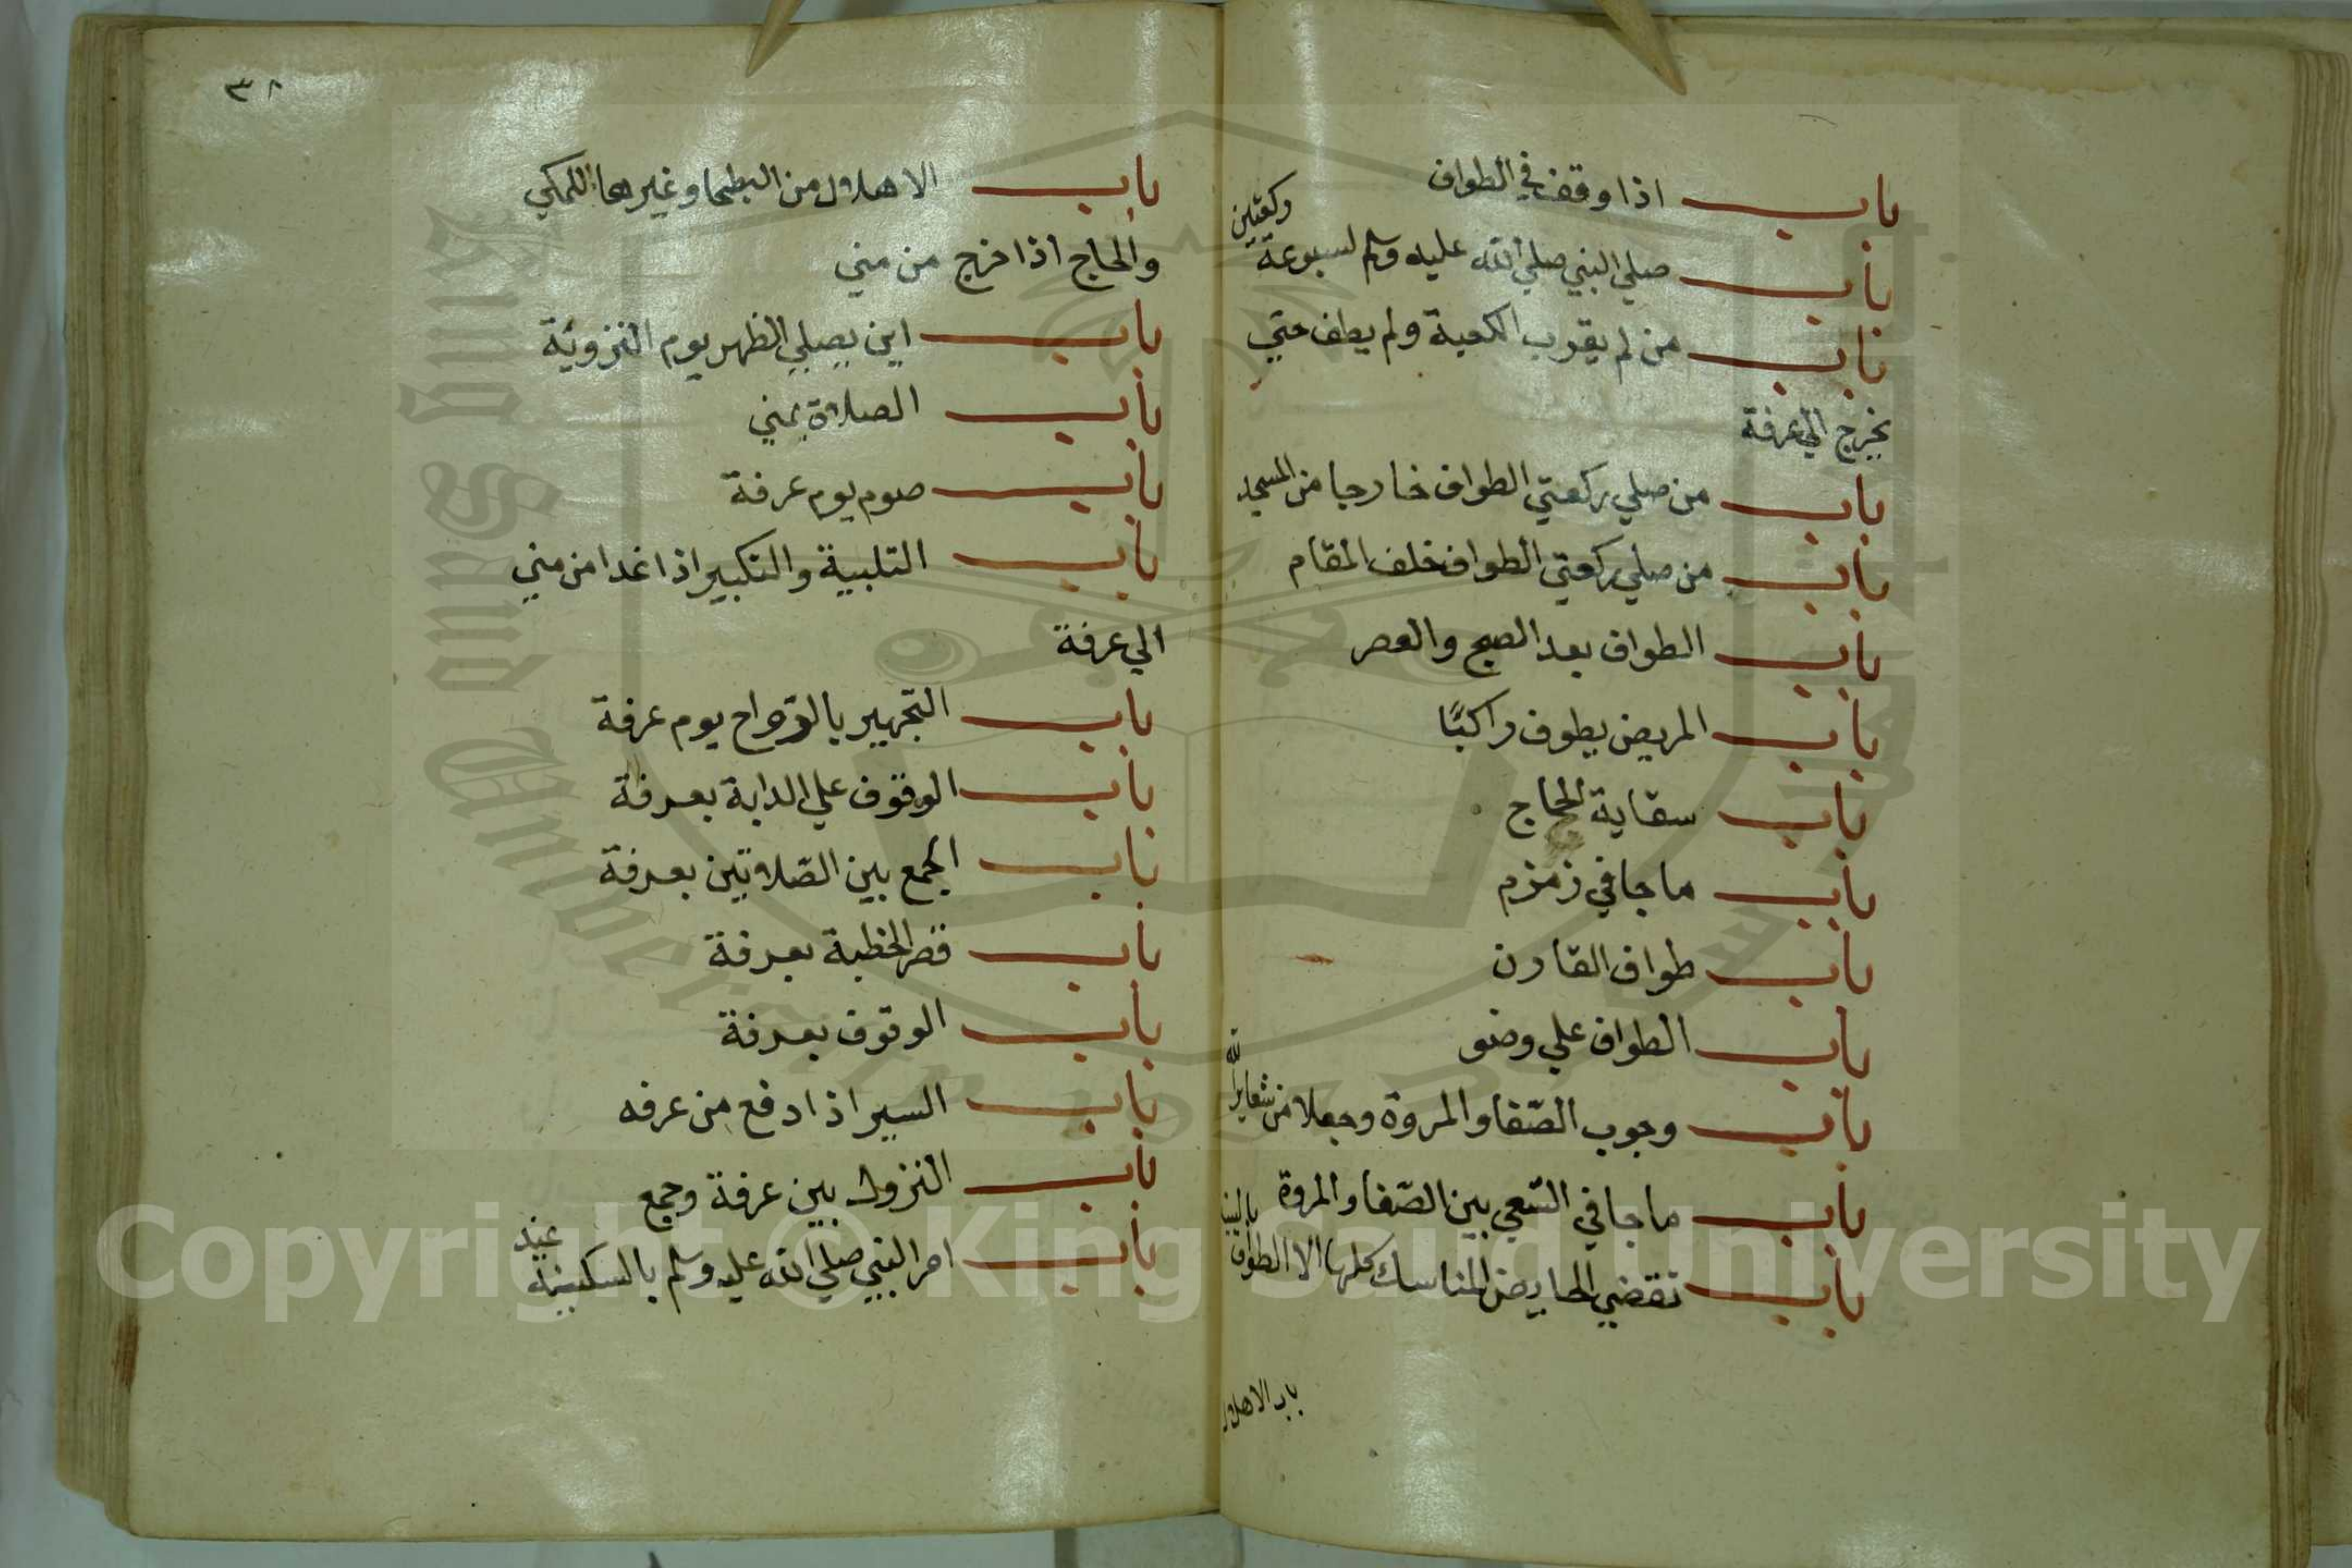 باب اذا وقف في الطواف
باب صلي النبي صلي الله عليه وسلم لسبوعة ركعتين
باب من لم يقرب الكعبة ولم يطف حتي
يخرج الي عرفة
باب من صلي ركعتي الطواف خارجا من المسجد
باب من صلي ركعتي الطواف خلف المقام
باب الطواف بعد الصبح والعصر
باب المريض يطوف راكبًا
باب سقاية الحاج
باب ما جا في زمزم
باب طواف القارن
باب الطواف علي وضو
باب وجوب الصّفا والمروة وجعلا من شعاير الله
باب ما جا في السّعي بين الصّفا والمروة
باب تقضي الحايض المناسك كلها الا الطواف
باب الاهلال
٣٨
باب الاهلال من البطحا وغيرها للمكي
والحاج اذا خرج من مني
باب اين يصلي الظهر يوم التروية
باب الصلاة بمني
باب صوم يوم عرفة
باب التلبية والتكبير اذا غدا من مني
الي عرفة
باب التجهير بالرواح يوم عرفة
باب الوقوف علي الدابة بعرفة
باب الجمع بين الصّلاتين بعرفة
باب قصر الخطبة بعرفة
باب الوقوف بعرفة
باب السير اذا دفع من عرفه
باب النزول بين عرفة وجمع
باب امر النبي صلي الله عليه وسلم بالسكينة عند
Copyright © King Saud University